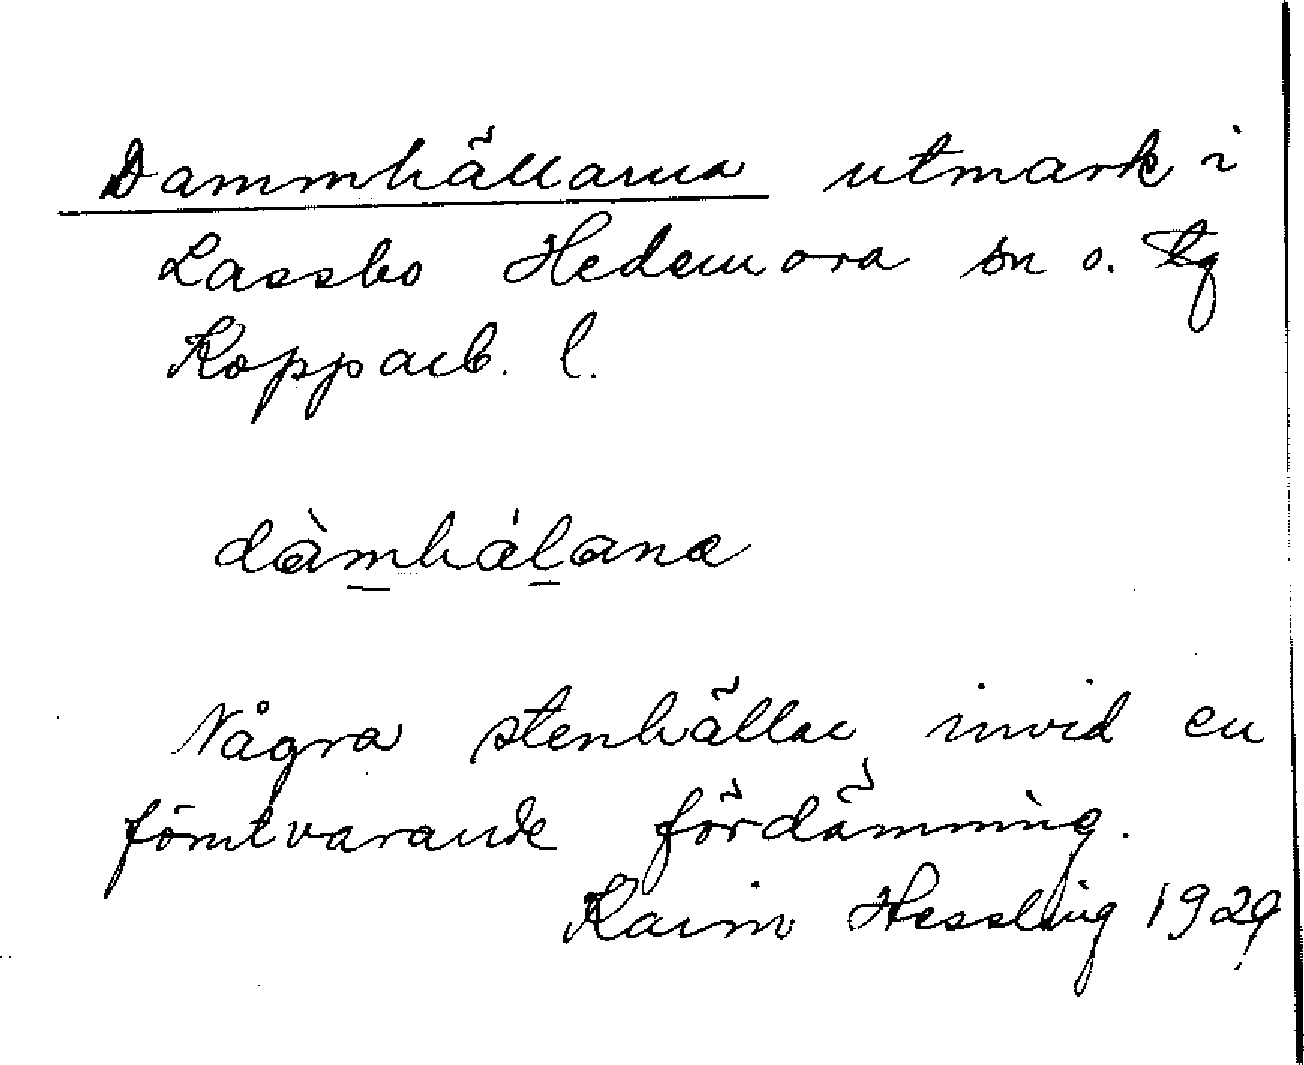 Dammhällarna utmark i
Lassbo Hedemora sn o. tg
Kopparb. l.
dàmhálana
Några stenhällar invid en
förutvarande fördämning.
Karin Hessling 1929